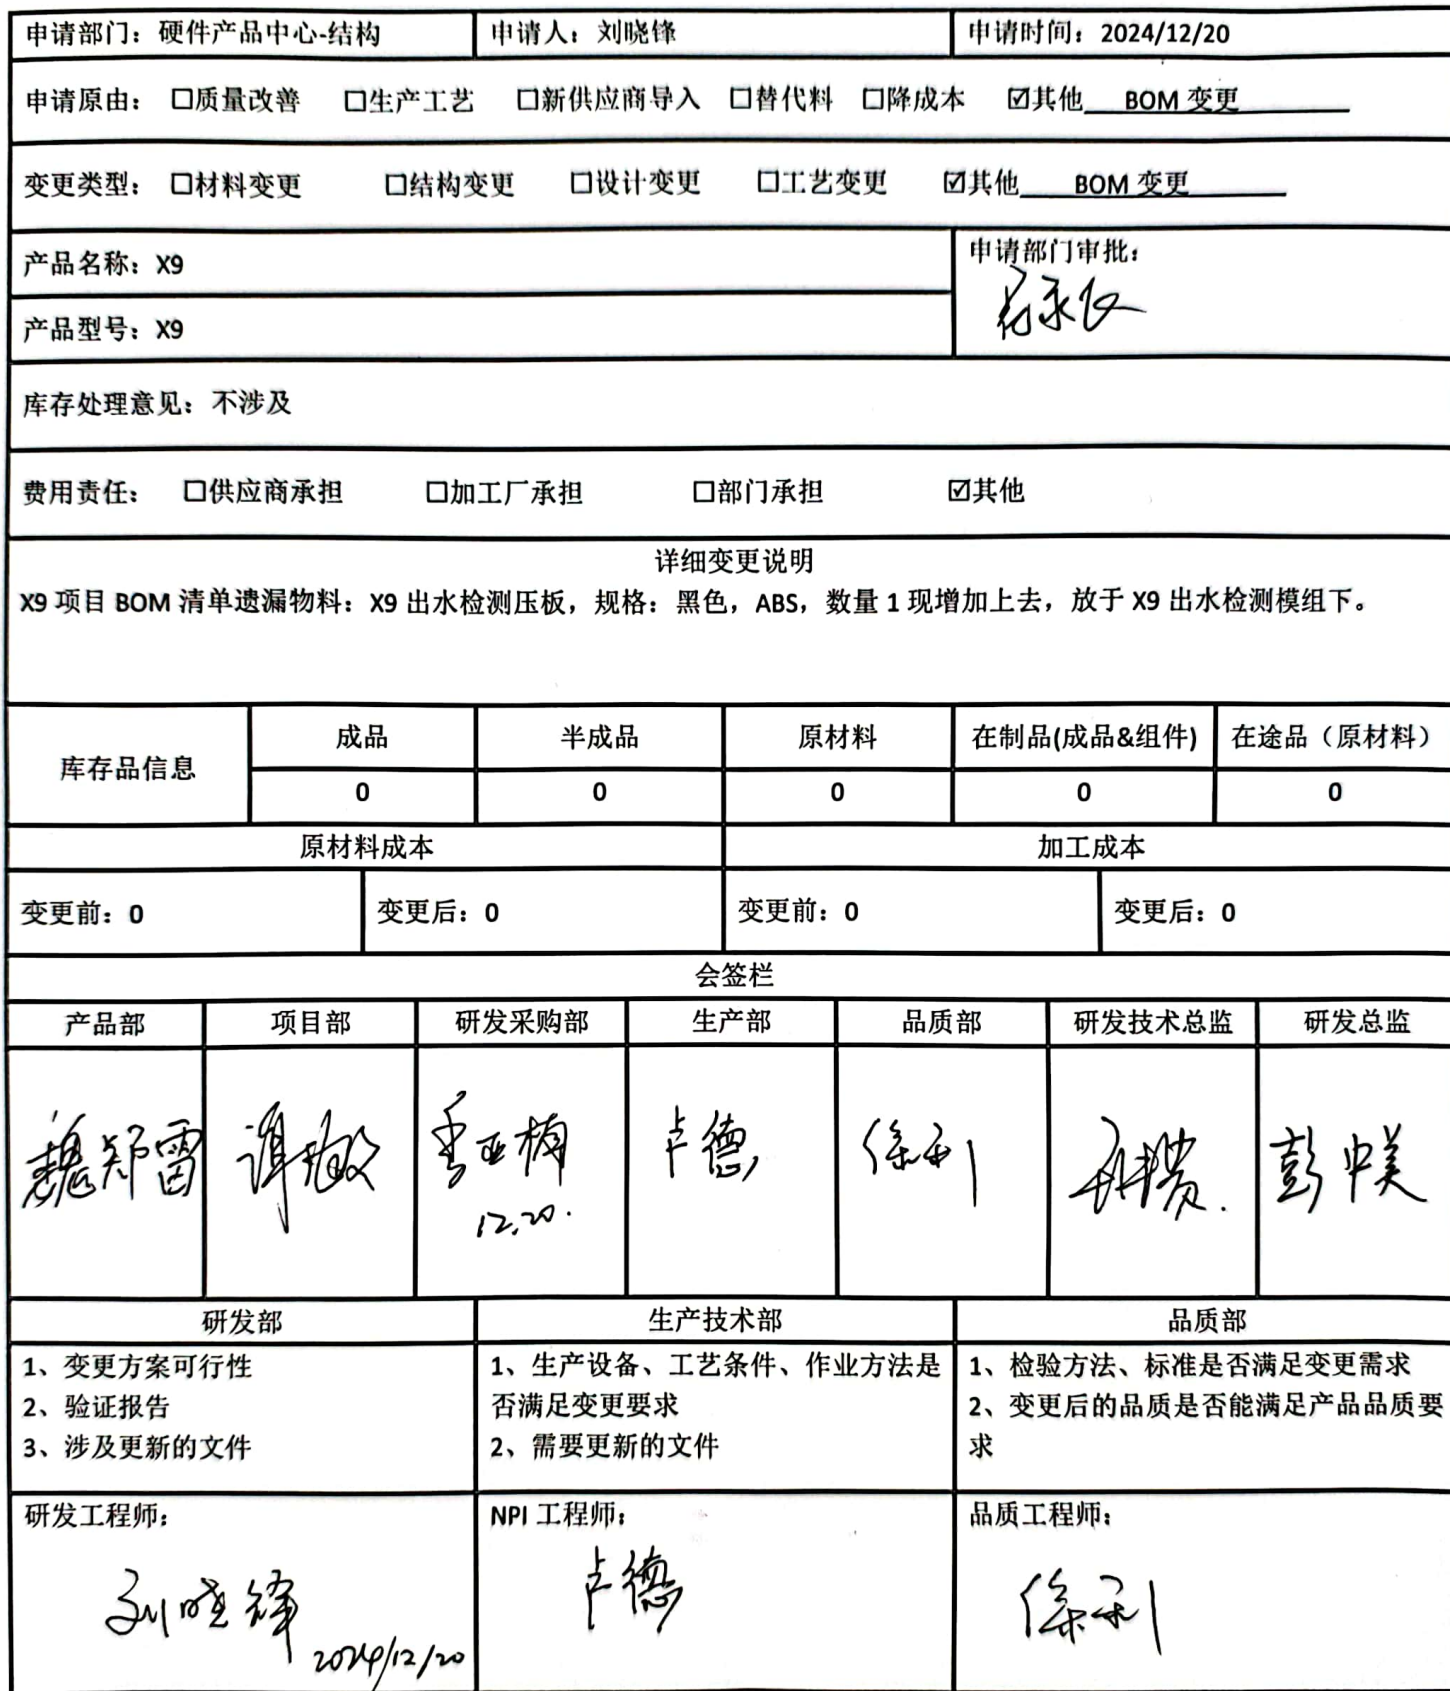 申请部门：硬件产品中心-结构 申请人：刘晓锋 申请时间：2024/12/20
申请原由：☐质量改善 ☐生产工艺 ☐新供应商导入 ☐替代料 ☐降成本 ☑其他 BOM 变更
变更类型：☐材料变更 ☐结构变更 ☐设计变更 ☐工艺变更 ☑其他 BOM 变更
产品名称：X9
申请部门审批：
产品型号：X9
库存处理意见：不涉及
费用责任：☐供应商承担 ☐加工厂承担 ☐部门承担 ☑其他
详细变更说明
X9 项目 BOM 清单遗漏物料：X9 出水检测压板，规格：黑色，ABS，数量 1 现增加上去，放于 X9 出水检测模组下。
库存品信息 成品 半成品 原材料 在制品(成品&组件) 在途品（原材料）
0 0 0 0 0
原材料成本 加工成本
变更前：0 变更后：0 变更前：0 变更后：0
会签栏
产品部 项目部 研发采购部 生产部 品质部 研发技术总监 研发总监
魏郑雷 卢德 徐利 彭中美
12.20.
研发部 生产技术部 品质部
1、变更方案可行性
2、验证报告
3、涉及更新的文件
1、生产设备、工艺条件、作业方法是
否满足变更要求
2、需要更新的文件
1、检验方法、标准是否满足变更需求
2、变更后的品质是否能满足产品品质要
求
研发工程师：
刘晓锋
2024/12/20
NPI 工程师：
卢德
品质工程师：
徐利